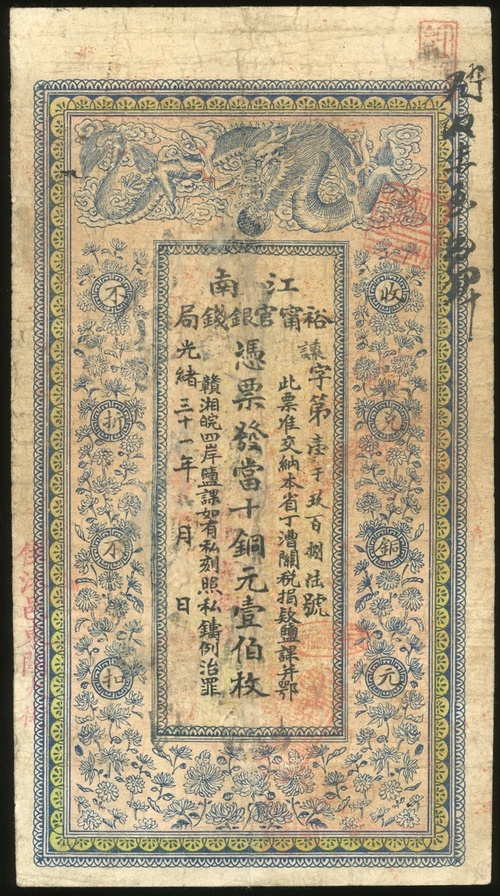 江南
裕甯官銀錢局
讓字第壹千玖百捌號
此票准交納本省丁漕關稅捐款鹽課并鄂
憑票發當十銅元壹佰枚
贛湘皖四岸鹽課如有私刻照私鑄例治罪
光緒三十一年 月 日
收兌銅元
不折不扣